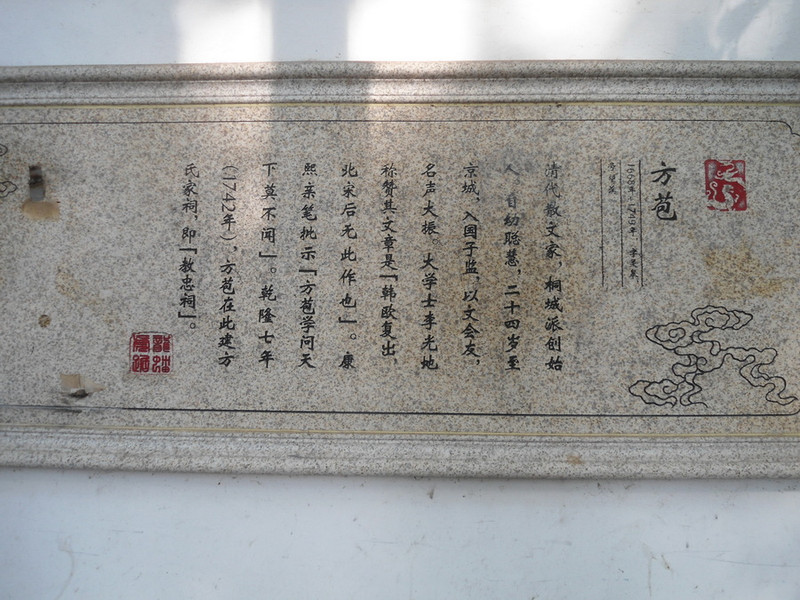 方苞
1668年-1749年，字灵皋
号望溪
清代散文家，桐城派创始
人。自幼聪慧，二十四岁至
京城，入国子监，以文会友，
名声大振。大学士李光地
称赞其文章是「韩欧复出，
北宋后无此作也」。康
熙亲笔批示「方苞学问天
下莫不闻」。乾隆七年
（1742年），方苞在此建方
氏家祠，即「教忠祠」。